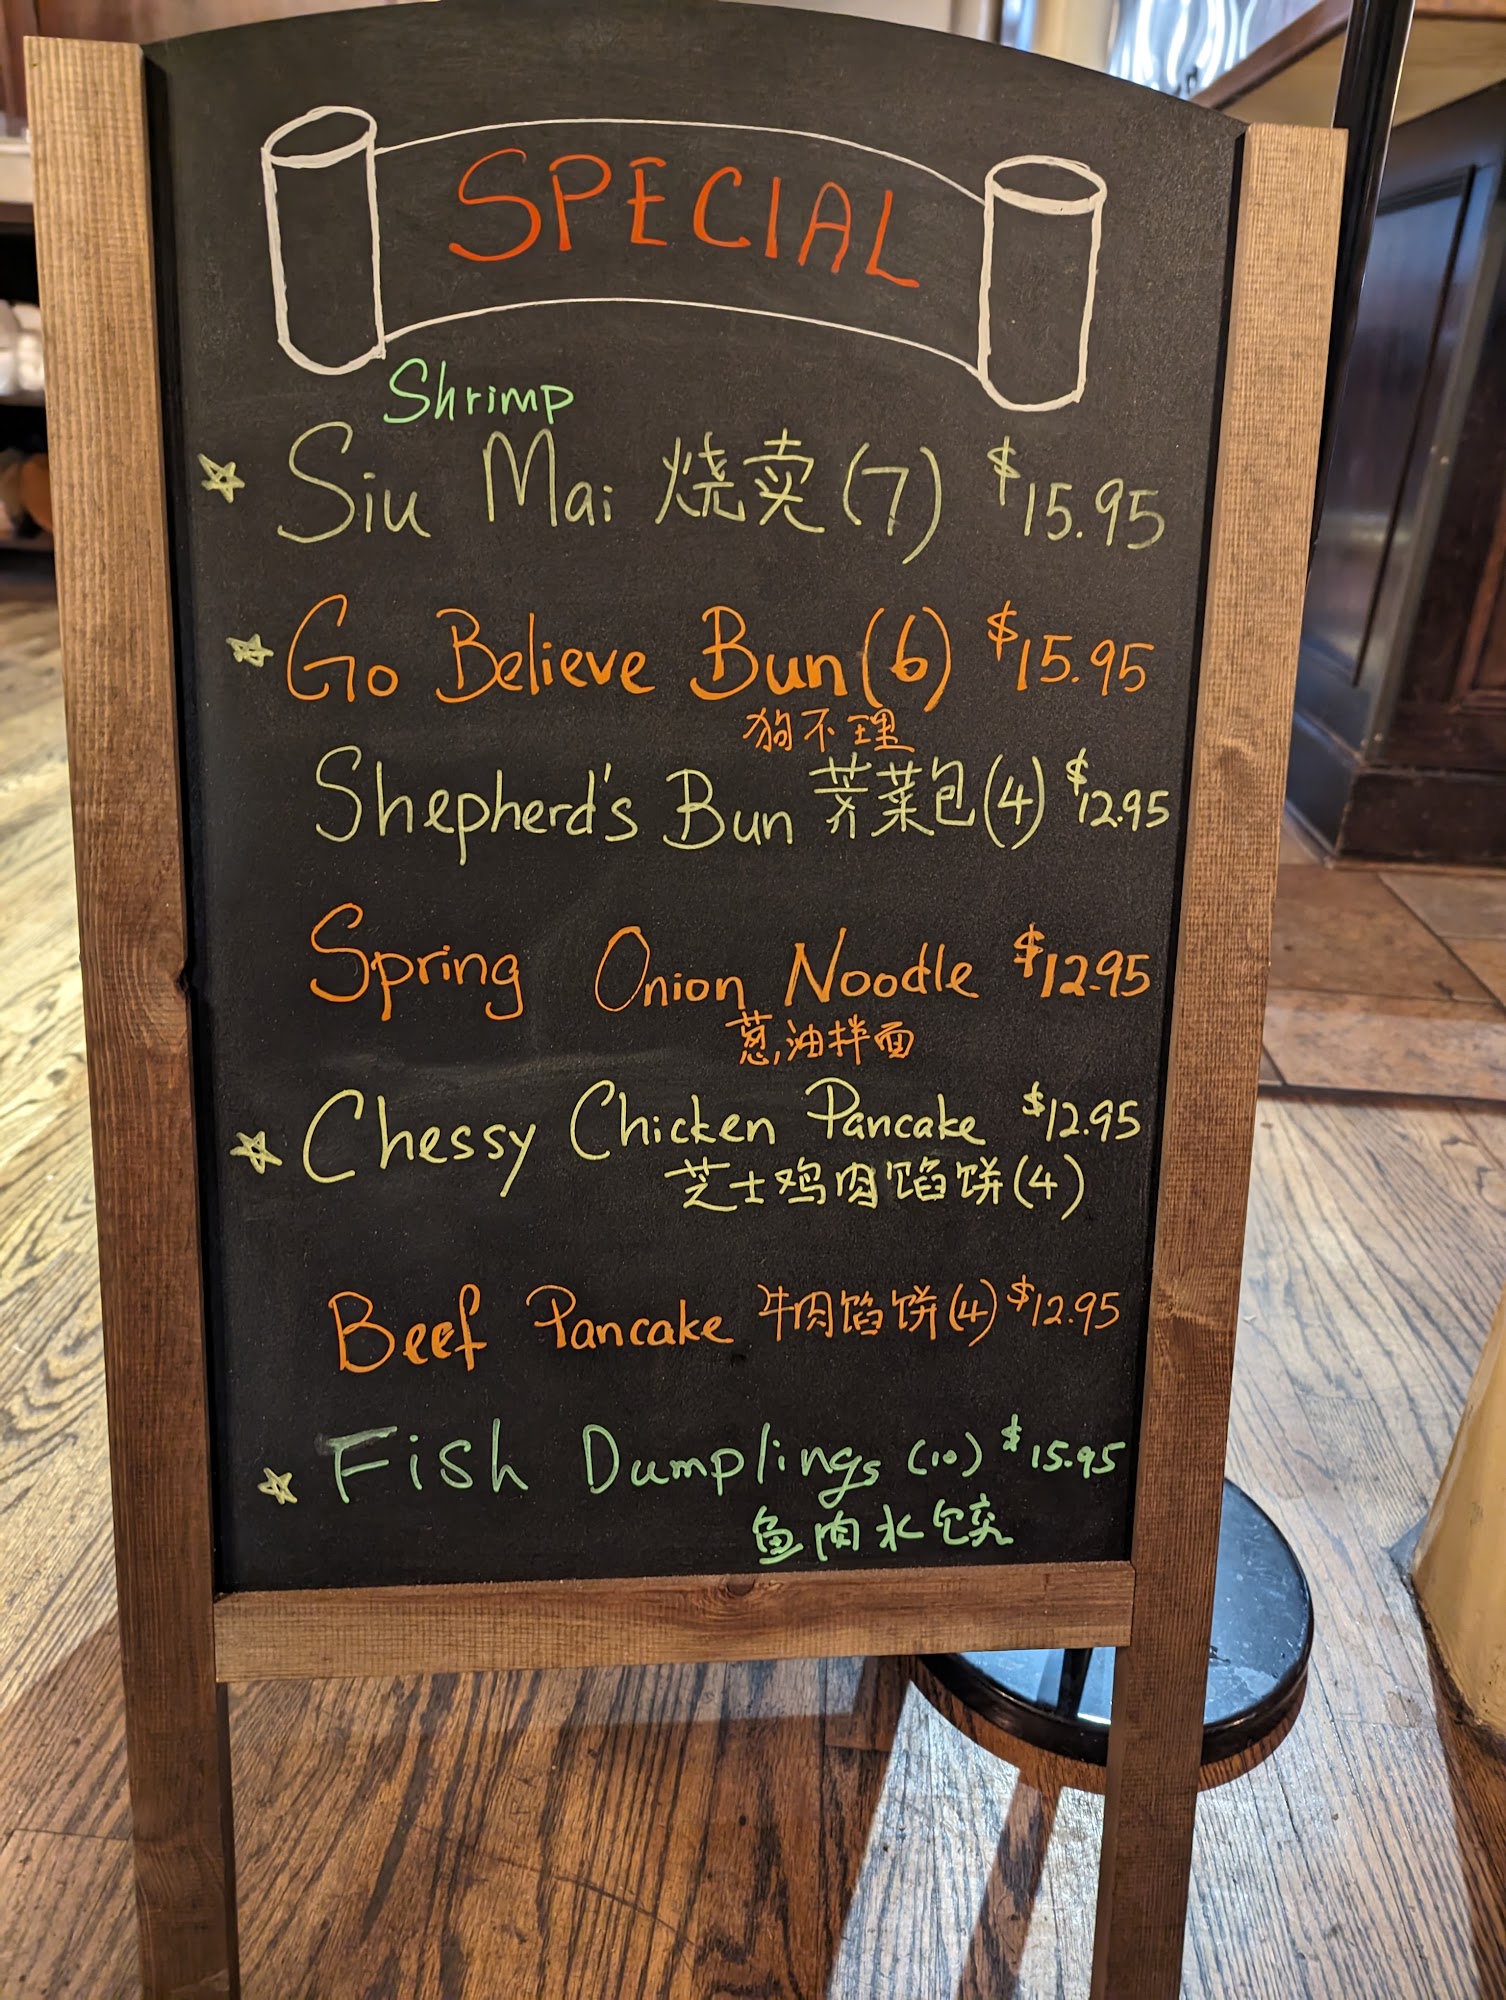 SPECIAL
Shrimp
Siu Mai 烧卖(7) $15.95
Go Believe Bun(6) $15.95
狗不理
Shepherd's Bun 荠菜包(4) $12.95
Spring Onion Noodle $12.95
葱油拌面
Chessy Chicken Pancake $12.95
芝士鸡肉馅饼(4)
Beef Pancake 牛肉馅饼(4) $12.95
Fish Dumplings (10) $15.95
鱼肉水饺